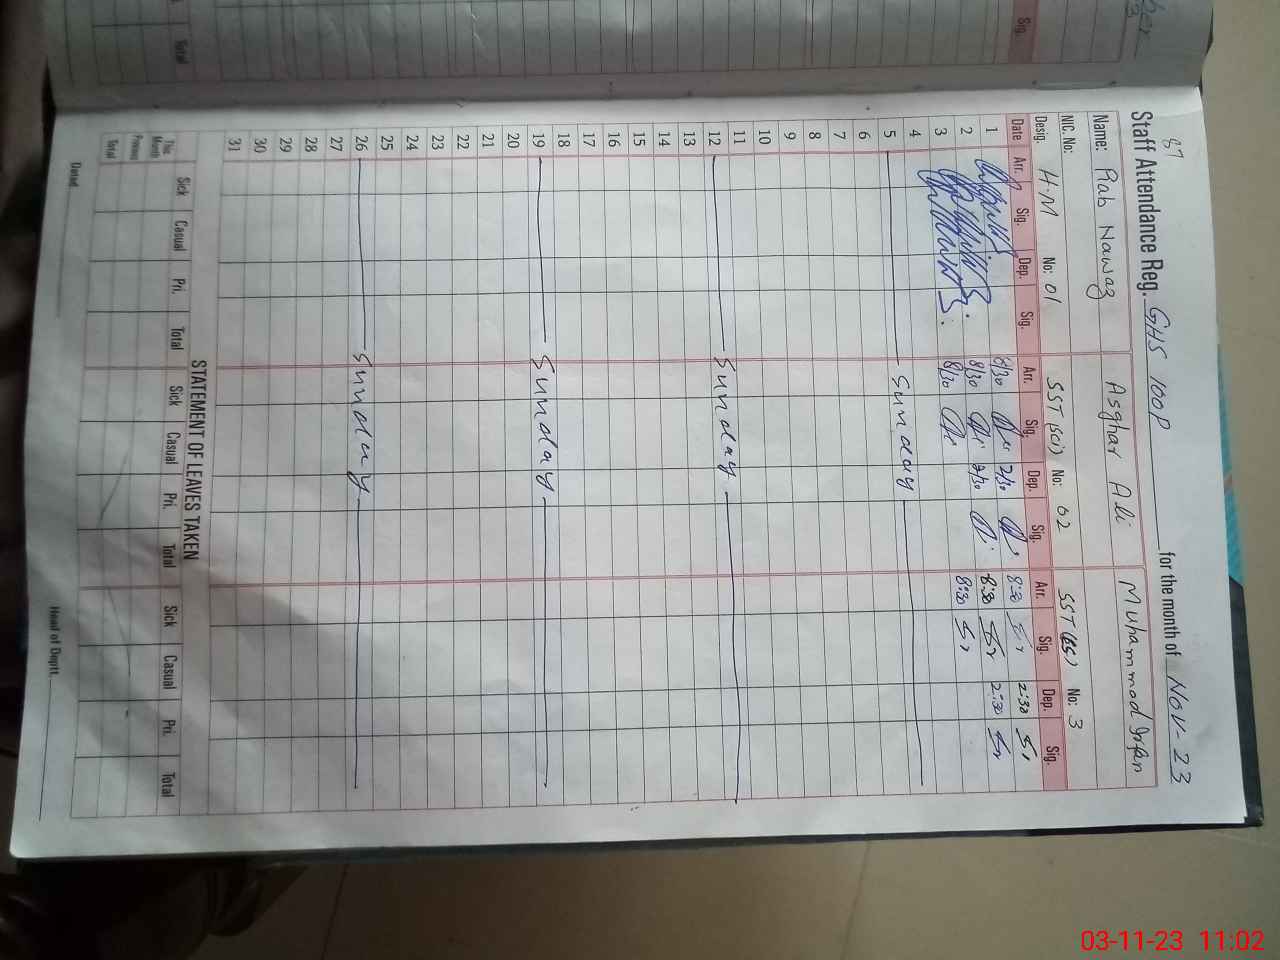 87
Staff Attendance Reg. GHS 100P for the month of Nov-23
Name: Rab Nawaz Asghar Ali Muhammad Irfan
NIC. No:
Desig. H.M No: 01 SST (sci) No: 02 SST (BS) No: 3
Date Arr. Sig. Dep. Sig. Arr. Sig. Dep. Sig. Arr. Sig. Dep. Sig.
1 8/30 2/30 8:30 2:30
2 8/30 2/30 8:30 2:30
3 8/30 8:30
4
5 Sunday
6
7
8
9
10
11
12 Sunday
13
14
15
16
17
18
19 Sunday
20
21
22
23
24
25
26 Sunday
27
28
29
30
31
STATEMENT OF LEAVES TAKEN
Sick Casual Pri. Total Sick Casual Pri. Total Sick Casual Pri. Total
This Month
Previous
Total
Dated Head of Deptt.
Sig.
Total
03-11-23 11:02